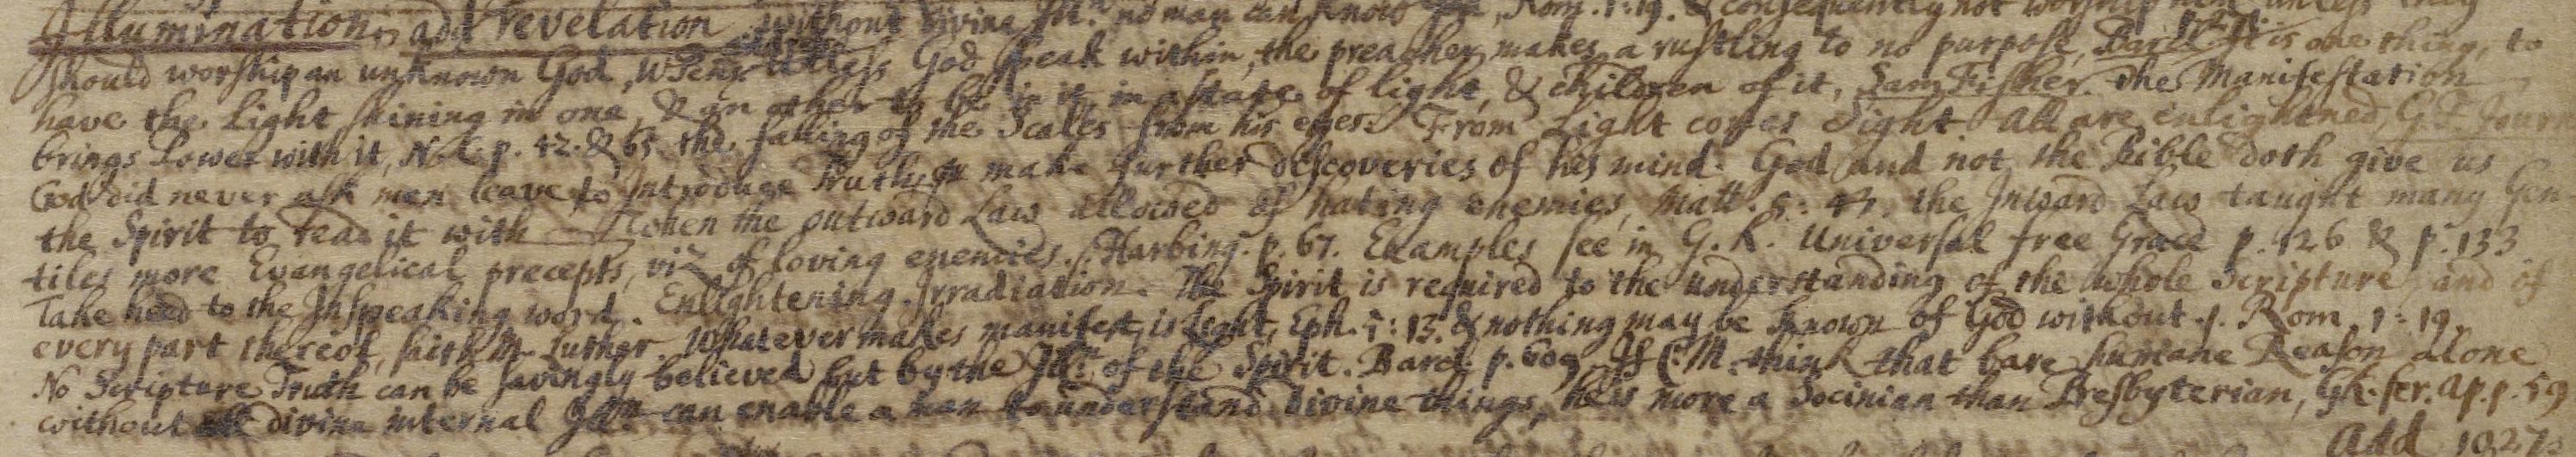 Illumination, add Revelation without divine Ill:n no man can know , Rom. 1: 19. & consequently not worship him unless they
should worship an unknown God, unless God speak within, the preacher makes a rustling to no purpose, Barcl. It is one thing, to
have the Light shining in one, & an other to be in it, in a state of light, & children of it, Sam Fisher. the Manifestation
brings Power with it, N. C. p. 42. & 65. the falling of the Scales from his eyes. From Light comes Sight. All are enlightned, G.F. Journ
God did never ask men leave to Introduce Truth, or make further discoveries of his mind. God and not the Bible doth give us
the Spirit to read it with When the outward Law allowed of hating enemies, Matt. 5: 43, the Inward Law taught many Gen
tiles more Evangelical precepts, viz of loving enemies. Harbing. p. 67. Examples see in G. K. Universal free Grace p. 126 & p. 133
Take heed to the Inspeaking word. Enlightening. Irradiation. The Spirit is required to the understanding of the whole Scripture, and of
every part thereof, saith M. Luther. Whatever makes manifest, is Light, Eph. 5: 13. & nothing may be known of God without .1. Rom. 1: 19.
No Scripture Truth can be savingly believed but by the Ill:n of the Spirit. Barcl. p. 609 If C. M. think that bare humane Reason alone
without all divine internal Ill:n can enable a man to understand divine things, he is more a Socinian than Presbyterian, GK. ser. ap. p. 59
Add 1027.